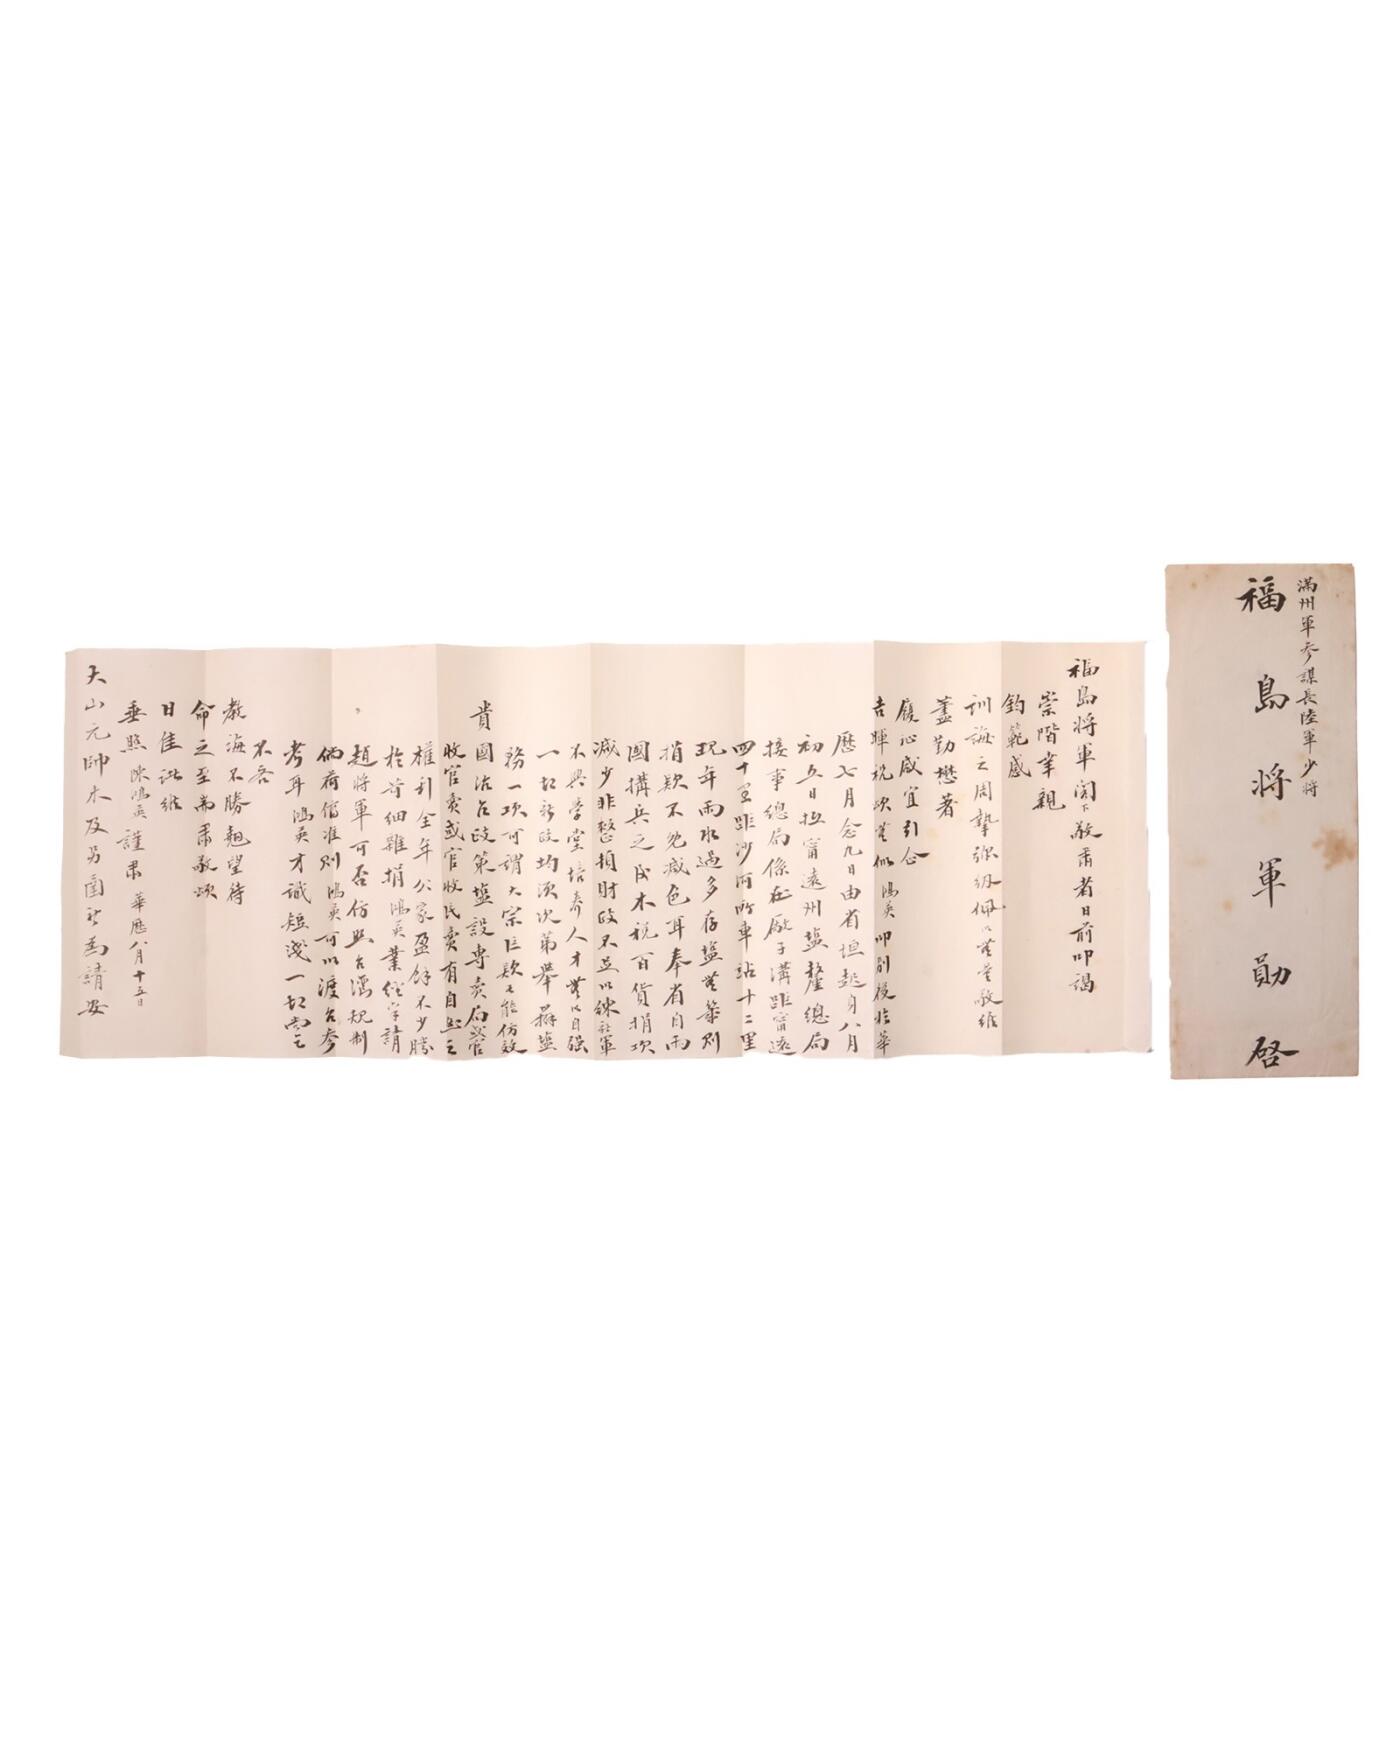 滿州軍參謀長陸軍少将
福島将軍勛啓
福島将軍閣下敬肅者日前叩謁
崇階幸親
鈞範感
訓誨之周摯弥紉佩以無量敬維
藎勤懋著
履祉咸宜引企
吉暉祝頌無似鴻英叩别後於華
歷七月念九日由省垣起身八月
初五日抵甯遠州鹽釐總局
接事總局係在廠子溝距甯遠
四十里距沙河所車站十二里
現年雨水過多存鹽無幾則
捐欵不免減色耳奉省自兩
國搆兵之後木税百貨捐項
減少非整頓財政不足以練新軍
不興學堂培養人才無以自强
一切新政均須次第舉辦鹽
務一項可謂大宗巨欵能仿效
貴國治台政策鹽設專賣局或官
收官賣或官收民賣有自然之
權利全年公家盈餘不少勝
於苛細雜捐鴻英業經字請
趙將軍可否仿照台灣規制
倘荷俯准則鴻英可以渡台參
考耳鴻英才識短淺一切尚乞
不吝
教誨不勝翹望待
命之至耑肅敬頌
日佳諸維
垂照陳鴻英謹肅華歷八月十五日
大山元帥